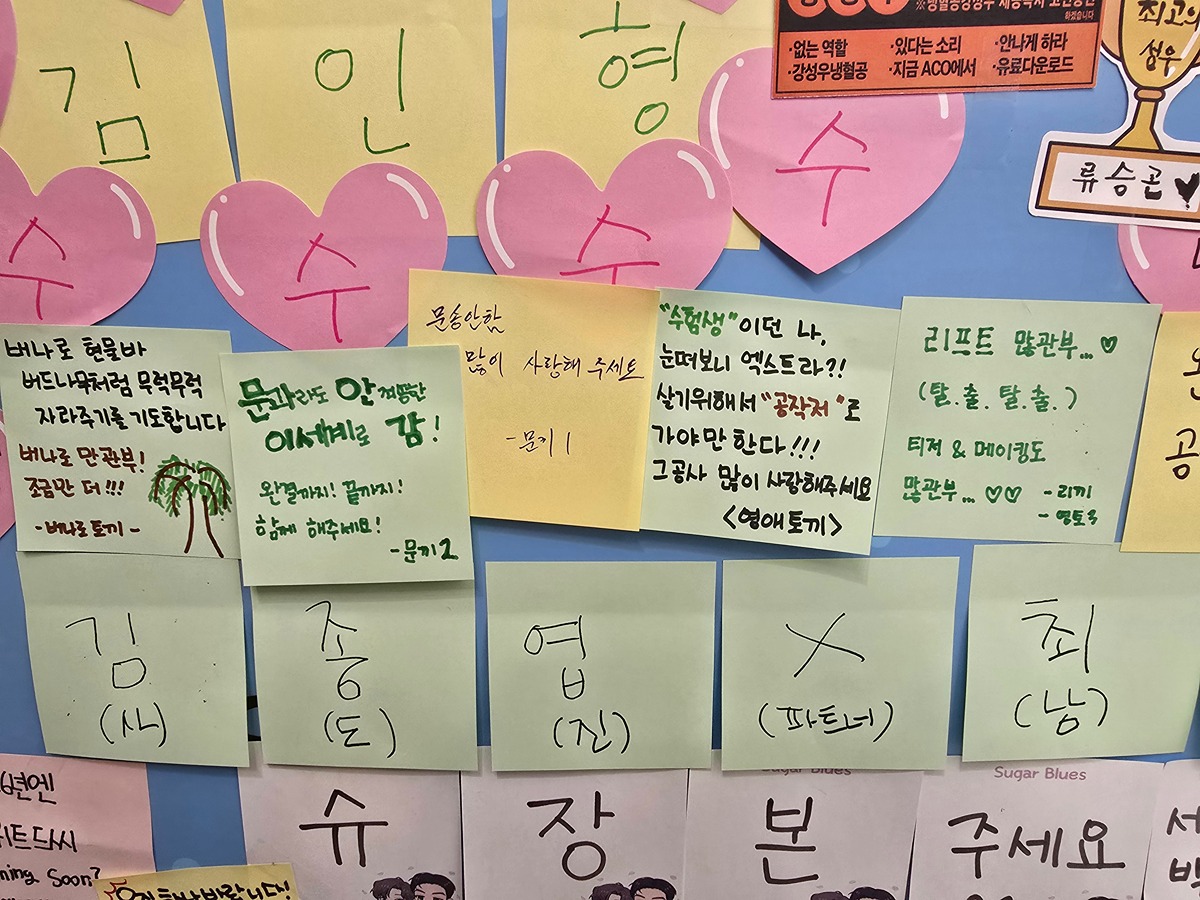 김
인
형
·없는 역할
·있다는 소리
·안나게 하라
·강성우냉혈공
·지금 ACO에서
·유료다운로드
최고의
성우
류승곤♥
수
수
수
수
버나로 현물바
버드나무처럼 무럭무럭
자라주기를 기도합니다
버나로 만관부!
조금만 더!!!
-버나로토끼-
문과라도 안 죄송한
이세계로 감!
완결까지! 끝까지!
함께 해주세요!
-문끼2
문송안함
많이 사랑해 주세요
-문끼1
"수험생"이던 나,
눈떠보니 엑스트라?!
살기위해서 "공작저"로
가야만 한다!!!
그공사 많이 사랑해주세요
<영애토끼>
리프트 많관부...♡
(탈.출.탈.출.)
티저 & 메이킹도
많관부...♡♡
-리끼
김
(사)
종
(도)
엽
(진)
X
(파트너)
최
(남)
6년엔
Soon?
슈
장
Sugar Blues
본
Sugar Blues
주세요